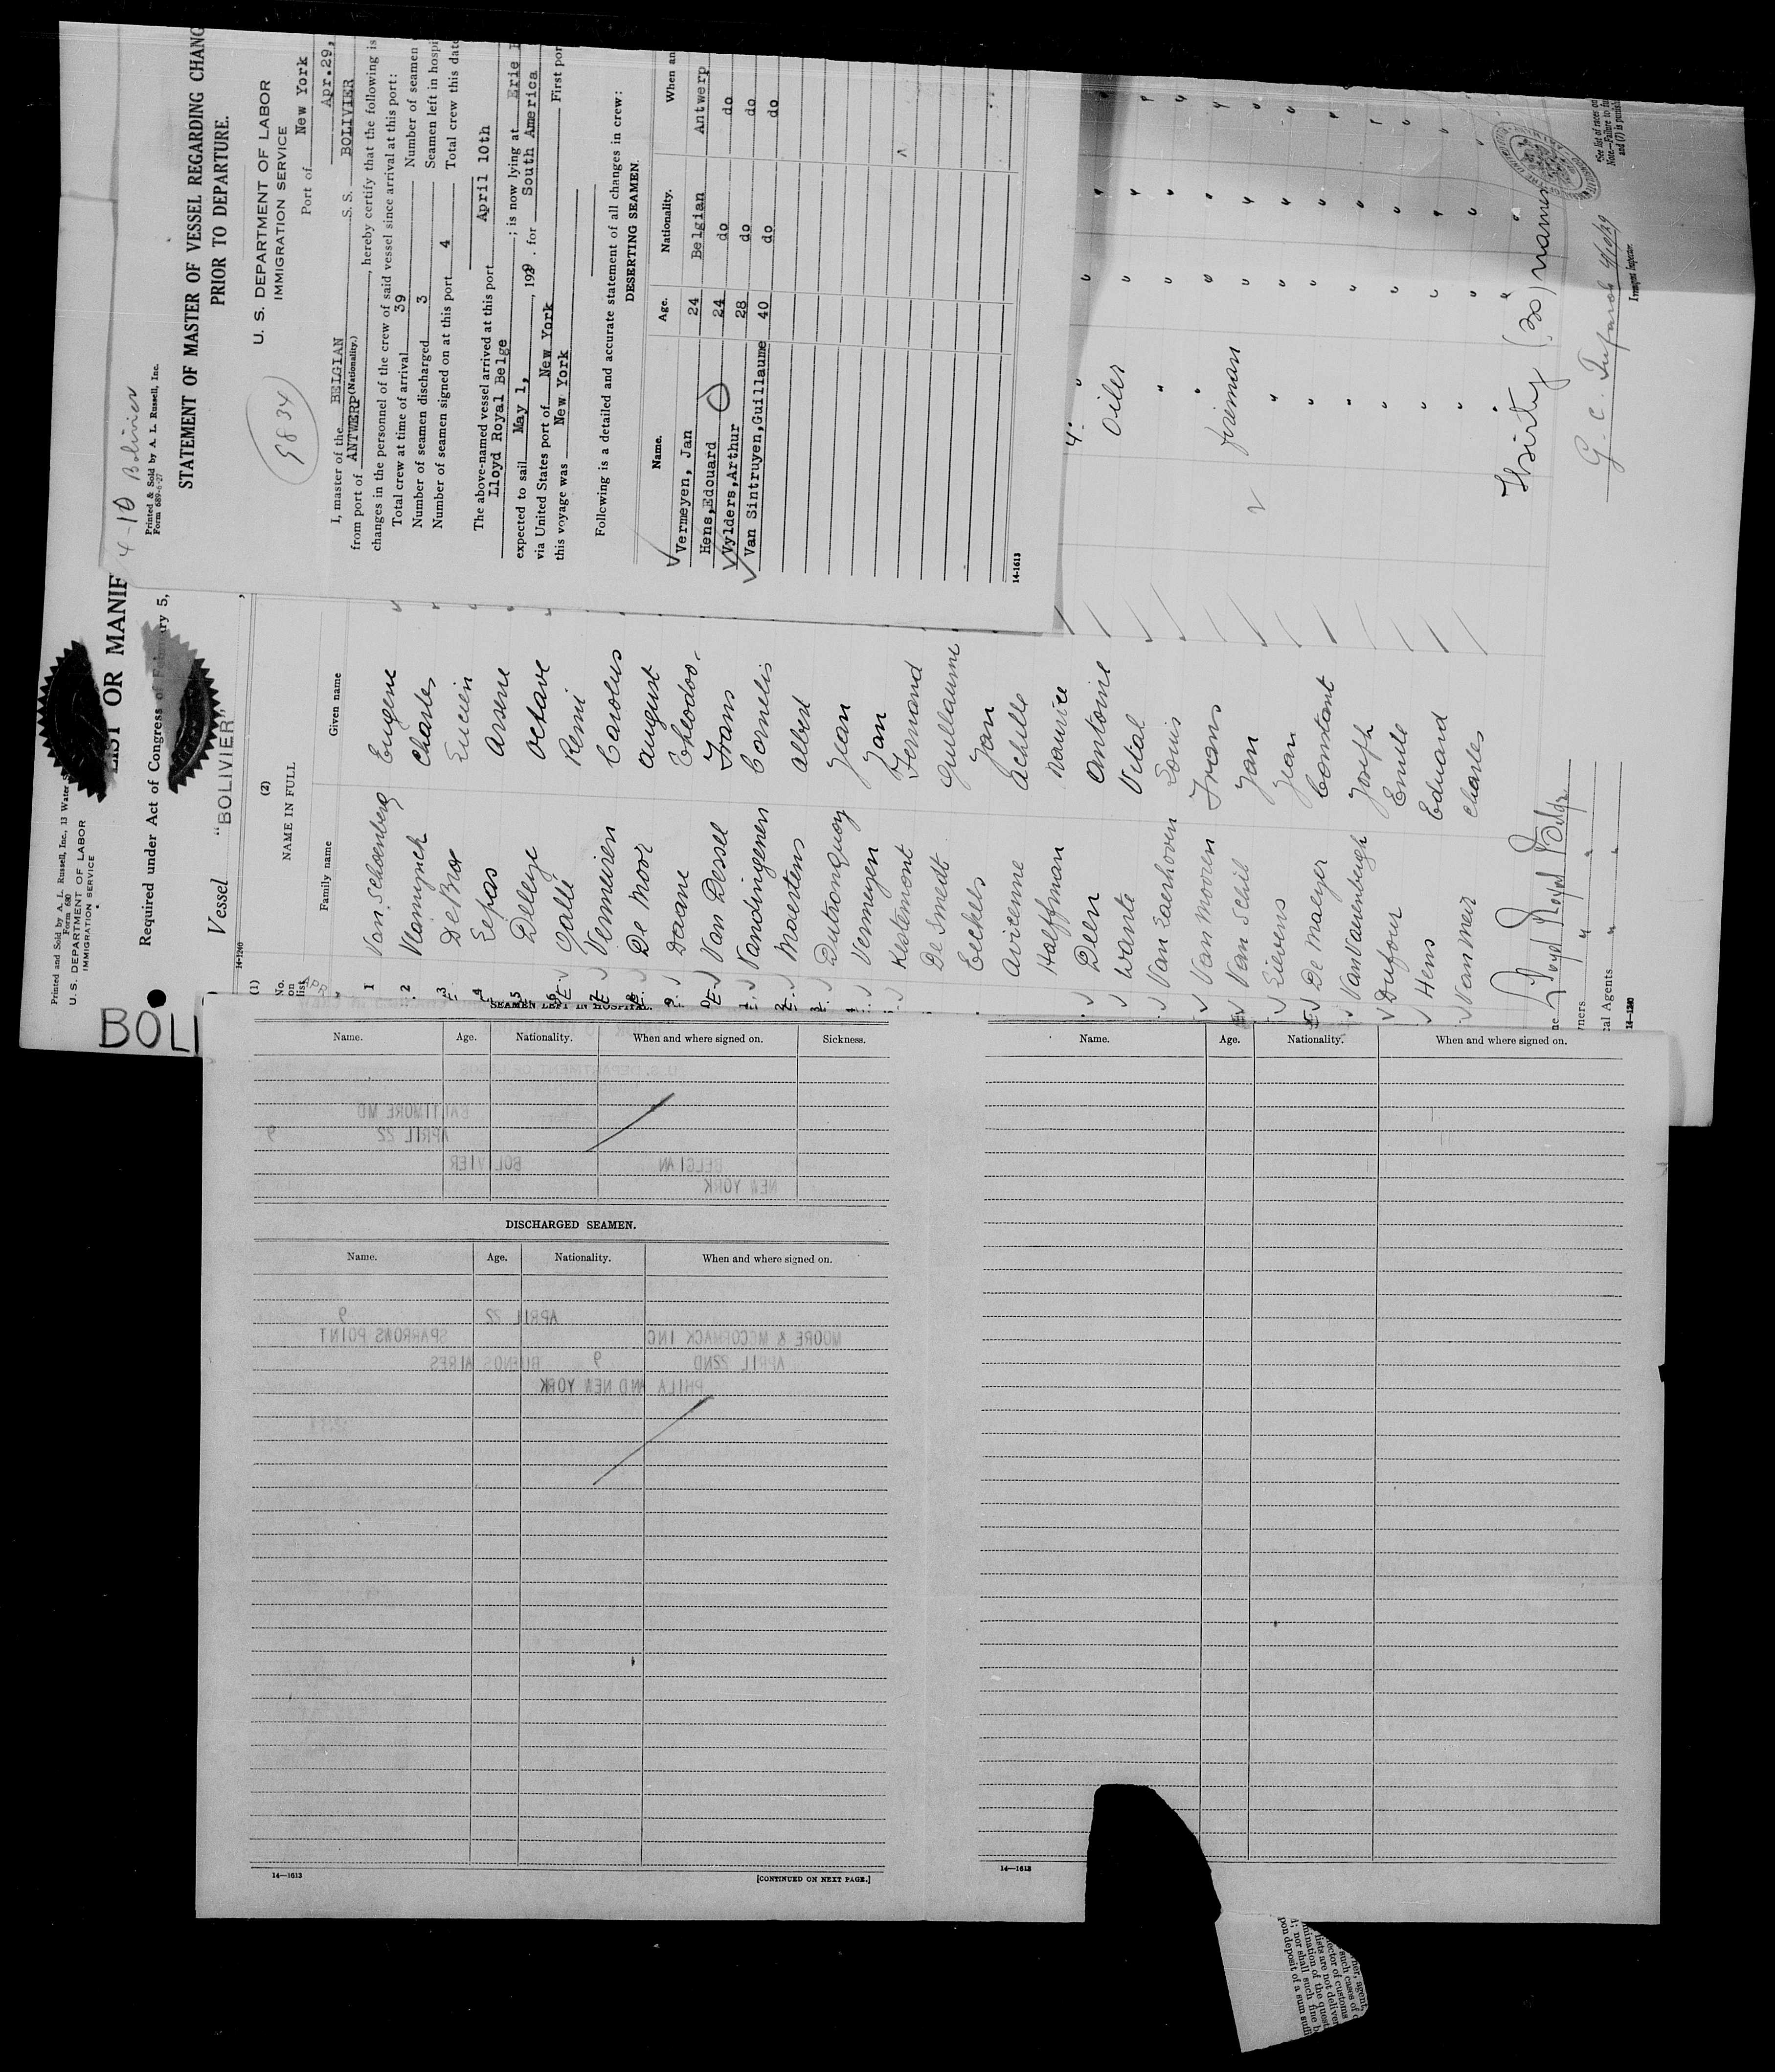 4-10 Bolivier
Printed & Sold by A. L. Russell, Inc.
Form 689-6-27
STATEMENT OF MASTER OF VESSEL REGARDING CHANG
PRIOR TO DEPARTURE.
U. S. DEPARTMENT OF LABOR
IMMIGRATION SERVICE
9834
Port of New York
Apr.29,
I, master of the BELGIAN S. S. BOLIVIER
(Nationality.)
from port of ANTWERP, hereby certify that the following is
changes in the personnel of the crew of said vessel since arrival at this port:
Total crew at time of arrival 39 Number of seamen
Number of seamen discharged 3 Seamen left in hospi
Number of seamen signed on at this port 4 Total crew this date
The above-named vessel arrived at this port April 10th
Lloyd Royal Belge; is now lying at Erie
expected to sail May 1, 1929. for South America
via United States port of New York
this voyage was New York First por
Following is a detailed and accurate statement of all changes in crew:
DESERTING SEAMEN.
Name. Age. Nationality. When an
Vermeyen, Jan 24 Belgian Antwerp
Hens,Edouard 24 do do
Wylders,Arthur 28 do do
Van Sintruyen,Guillaume 40 do do
14-1613
Printed and Sold by A. L. Russell, Inc., 13 Water S
Form 680
U. S. DEPARTMENT OF LABOR
IMMIGRATION SERVICE
LIST OR MANIF
Required under Act of Congress of February 5,
Vessel "BOLIVIER"
14-1240
(1) (2)
No. on list NAME IN FULL
Family name Given name
1 Van Schoenberg Eugene
2 Vlaminck Charles
3 De Bra Lucien
4 Lepas Arsene
5 Delleye Octave
6 Galli Remi
7 Vermeiren Carolus
8 De Moor August
9 Daane Theodoo
Van Dessel Frans
Vandingenen Cornelis
Maertens Albert
Dutronquoy Jean
Vermeyen Jan
Klotemont Fernand
De Smedt Guillaume
Eeckels Jan
Avicenne Achille
Halffman Maurice
Deen Antoine
Wante Vital
Van Laerhoven Louis
Van Mooren Frans
Van Schil Jan
Lievens Jean
De Maeyer Constant
Van Vaerenbergh Joseph
Dufour Emile
Hens Eduard
Van Meir Charles
Oiler
"
"
fireman
Thirty (30) names
Lloyd Royal Belge
ners " "
al Agents " "
14-1240
Immigrant Inspector.
See list of races on
Note.—Failure to fu
and (7) is punish
BOLI
SEAMEN LEFT IN HOSPITAL.
Name. Age. Nationality. When and where signed on. Sickness.
BALTIMORE MD
APRIL 22 9
BELGIAN BOLIVIER
NEW YORK
DISCHARGED SEAMEN.
Name. Age. Nationality. When and where signed on.
APRIL 22 9
MOORE & MCCORMACK INC SPARROWS POINT
APRIL 22ND 9 BUENOS AIRES
PHILA AND NEW YORK
14—1613
[CONTINUED ON NEXT PAGE.]
Name. Age. Nationality. When and where signed on.
14—1613
ner, agent,
such cases of
ector of customs
lists are not deliver
mination of the quest
d; nor shall such fine b
pon deposit of a sum suffi